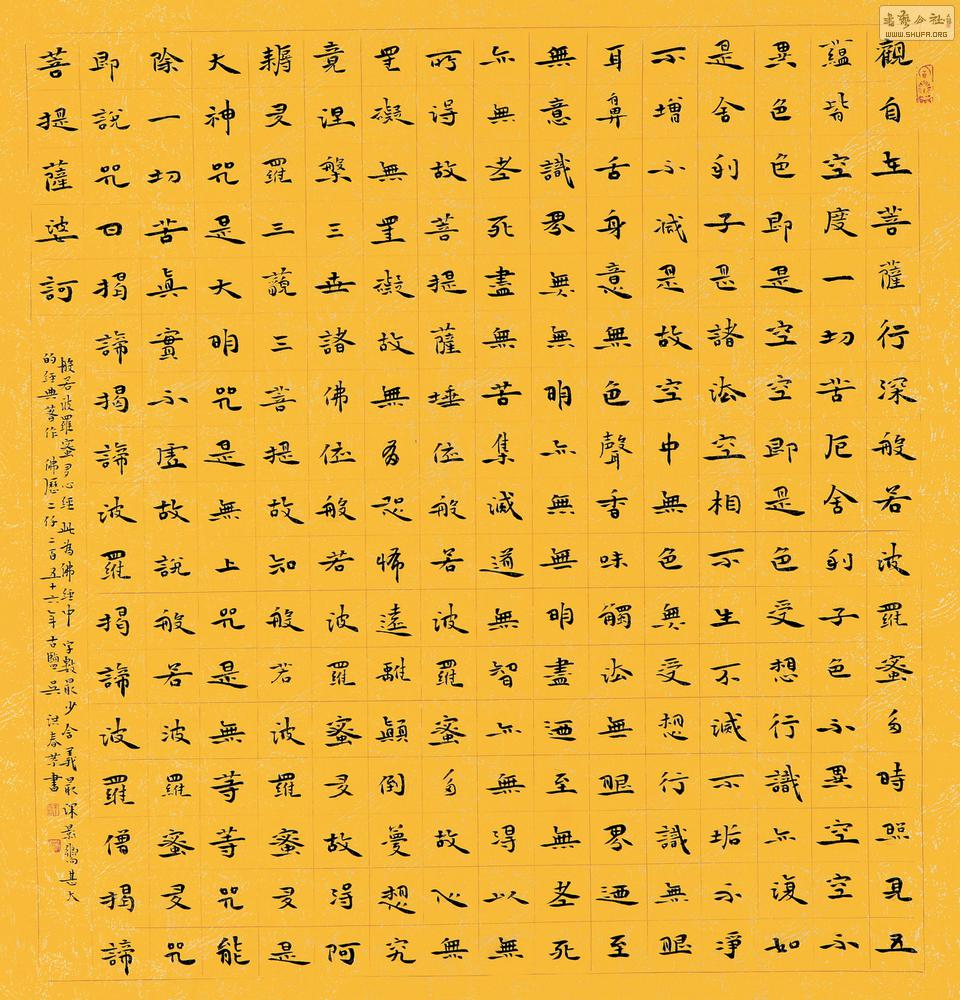 觀自在菩薩行深般若波羅蜜多時照見五
蘊皆空度一切苦厄舍利子色不異空空不
異色色即是空空即是色受想行識亦復如
是舍利子是諸法空相不生不滅不垢不淨
不增不減是故空中無色無受想行識無眼
耳鼻舌身意無色聲香味觸法無眼界迺至
無意識界無無明亦無無明盡迺至無老死
亦無老死盡無苦集滅道無智亦無得以無
所得故菩提薩埵依般若波羅蜜多故心無
罣礙無罣礙故無有恐怖遠離顛倒夢想究
竟涅槃三世諸佛依般若波羅蜜多故得阿
耨多羅三藐三菩提故知般若波羅蜜多是
大神咒是大明咒是無上咒是無等等咒能
除一切苦真實不虛故說般若波羅蜜多咒
即說咒曰揭諦揭諦波羅揭諦波羅僧揭諦
菩提薩婆訶
般若波羅蜜多心經此為佛經中字數最少含義最深影響甚大
的經典著作 佛歷二仟二百五十六年古鹽吳洪春恭書
书艺公社
WWW.SHUFA.ORG